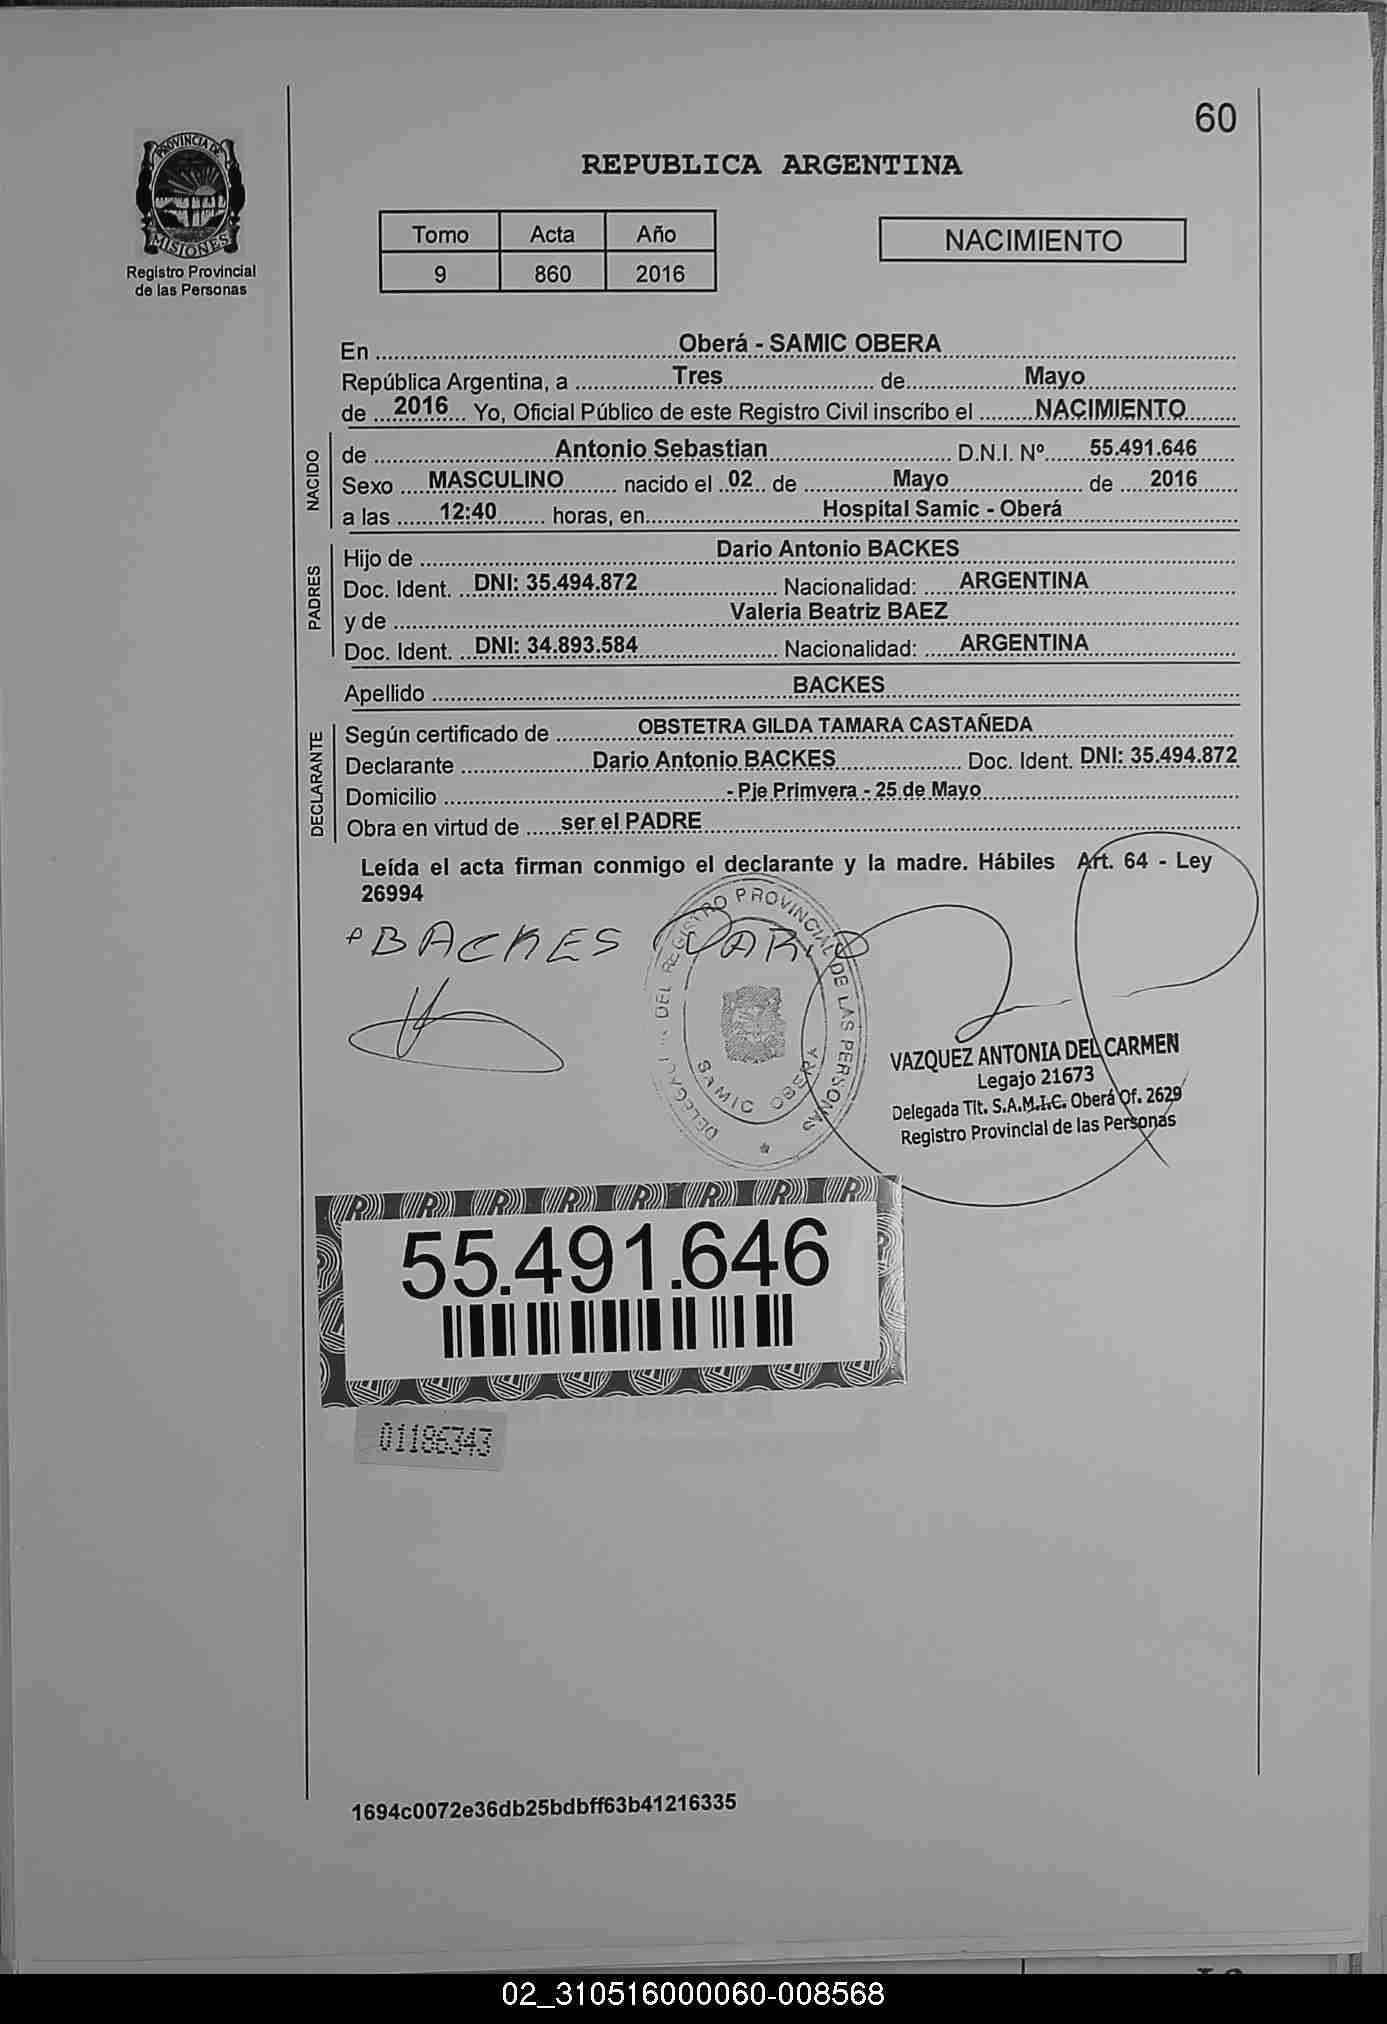 60
PROVINCIA DE
MISIONES
Registro Provincial
de las Personas
REPUBLICA ARGENTINA
Tomo Acta Año
9 860 2016
NACIMIENTO
En Oberá - SAMIC OBERA
República Argentina, a Tres de Mayo
de 2016 Yo, Oficial Público de este Registro Civil inscribo el NACIMIENTO
NACIDO
de Antonio Sebastian D.N.I. Nº 55.491.646
Sexo MASCULINO nacido el 02 de Mayo de 2016
a las 12:40 horas, en Hospital Samic - Oberá
PADRES
Hijo de Dario Antonio BACKES
Doc. Ident. DNI: 35.494.872 Nacionalidad: ARGENTINA
y de Valeria Beatriz BAEZ
Doc. Ident. DNI: 34.893.584 Nacionalidad: ARGENTINA
Apellido BACKES
DECLARANTE
Según certificado de OBSTETRA GILDA TAMARA CASTAÑEDA
Declarante Dario Antonio BACKES Doc. Ident. DNI: 35.494.872
Domicilio - Pje Primvera - 25 de Mayo
Obra en virtud de ser el PADRE
Leída el acta firman conmigo el declarante y la madre. Hábiles Art. 64 - Ley
26994
BACKES DARIO
DEL REGISTRO PROVINCIAL DE LAS PERSONAS
SAMIC OBERA
VAZQUEZ ANTONIA DEL CARMEN
Legajo 21673
Delegada Tit. S.A.M.I.C. Oberá Of. 2629
Registro Provincial de las Personas
55.491.646
01186343
1694c0072e36db25bdbff63b41216335
02_310516000060-008568